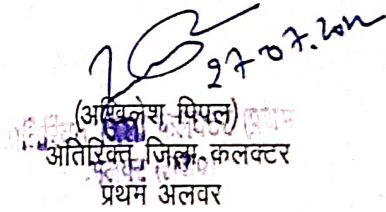 27.07.2022
(अखिलेश पिपल)
अतिरिक्त जिला कलक्टर
प्रथम अलवर